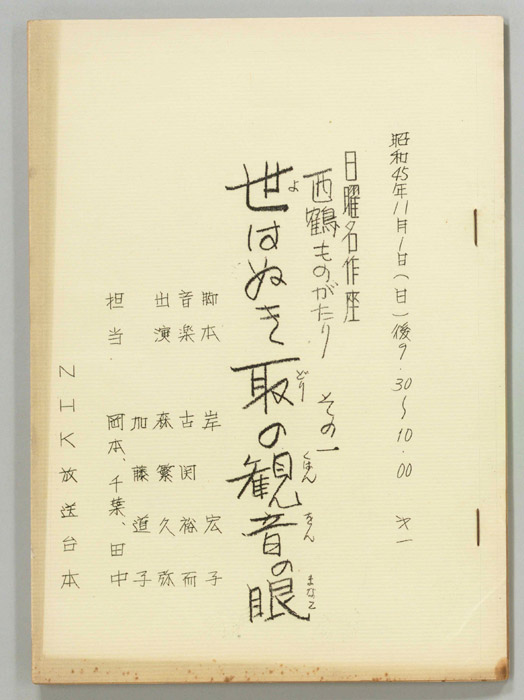 昭和45年11月1日(日)後9.30〜10.00 才一
日曜名作座
西鶴ものがたり その一
世はぬき取の観音の眼
よ どり くはん をん まなこ
脚本 岸 宏子
音楽 古関裕而
出演 森繁久弥
加藤道子
担当. 岡本、千葉、田中
NHK放送台本